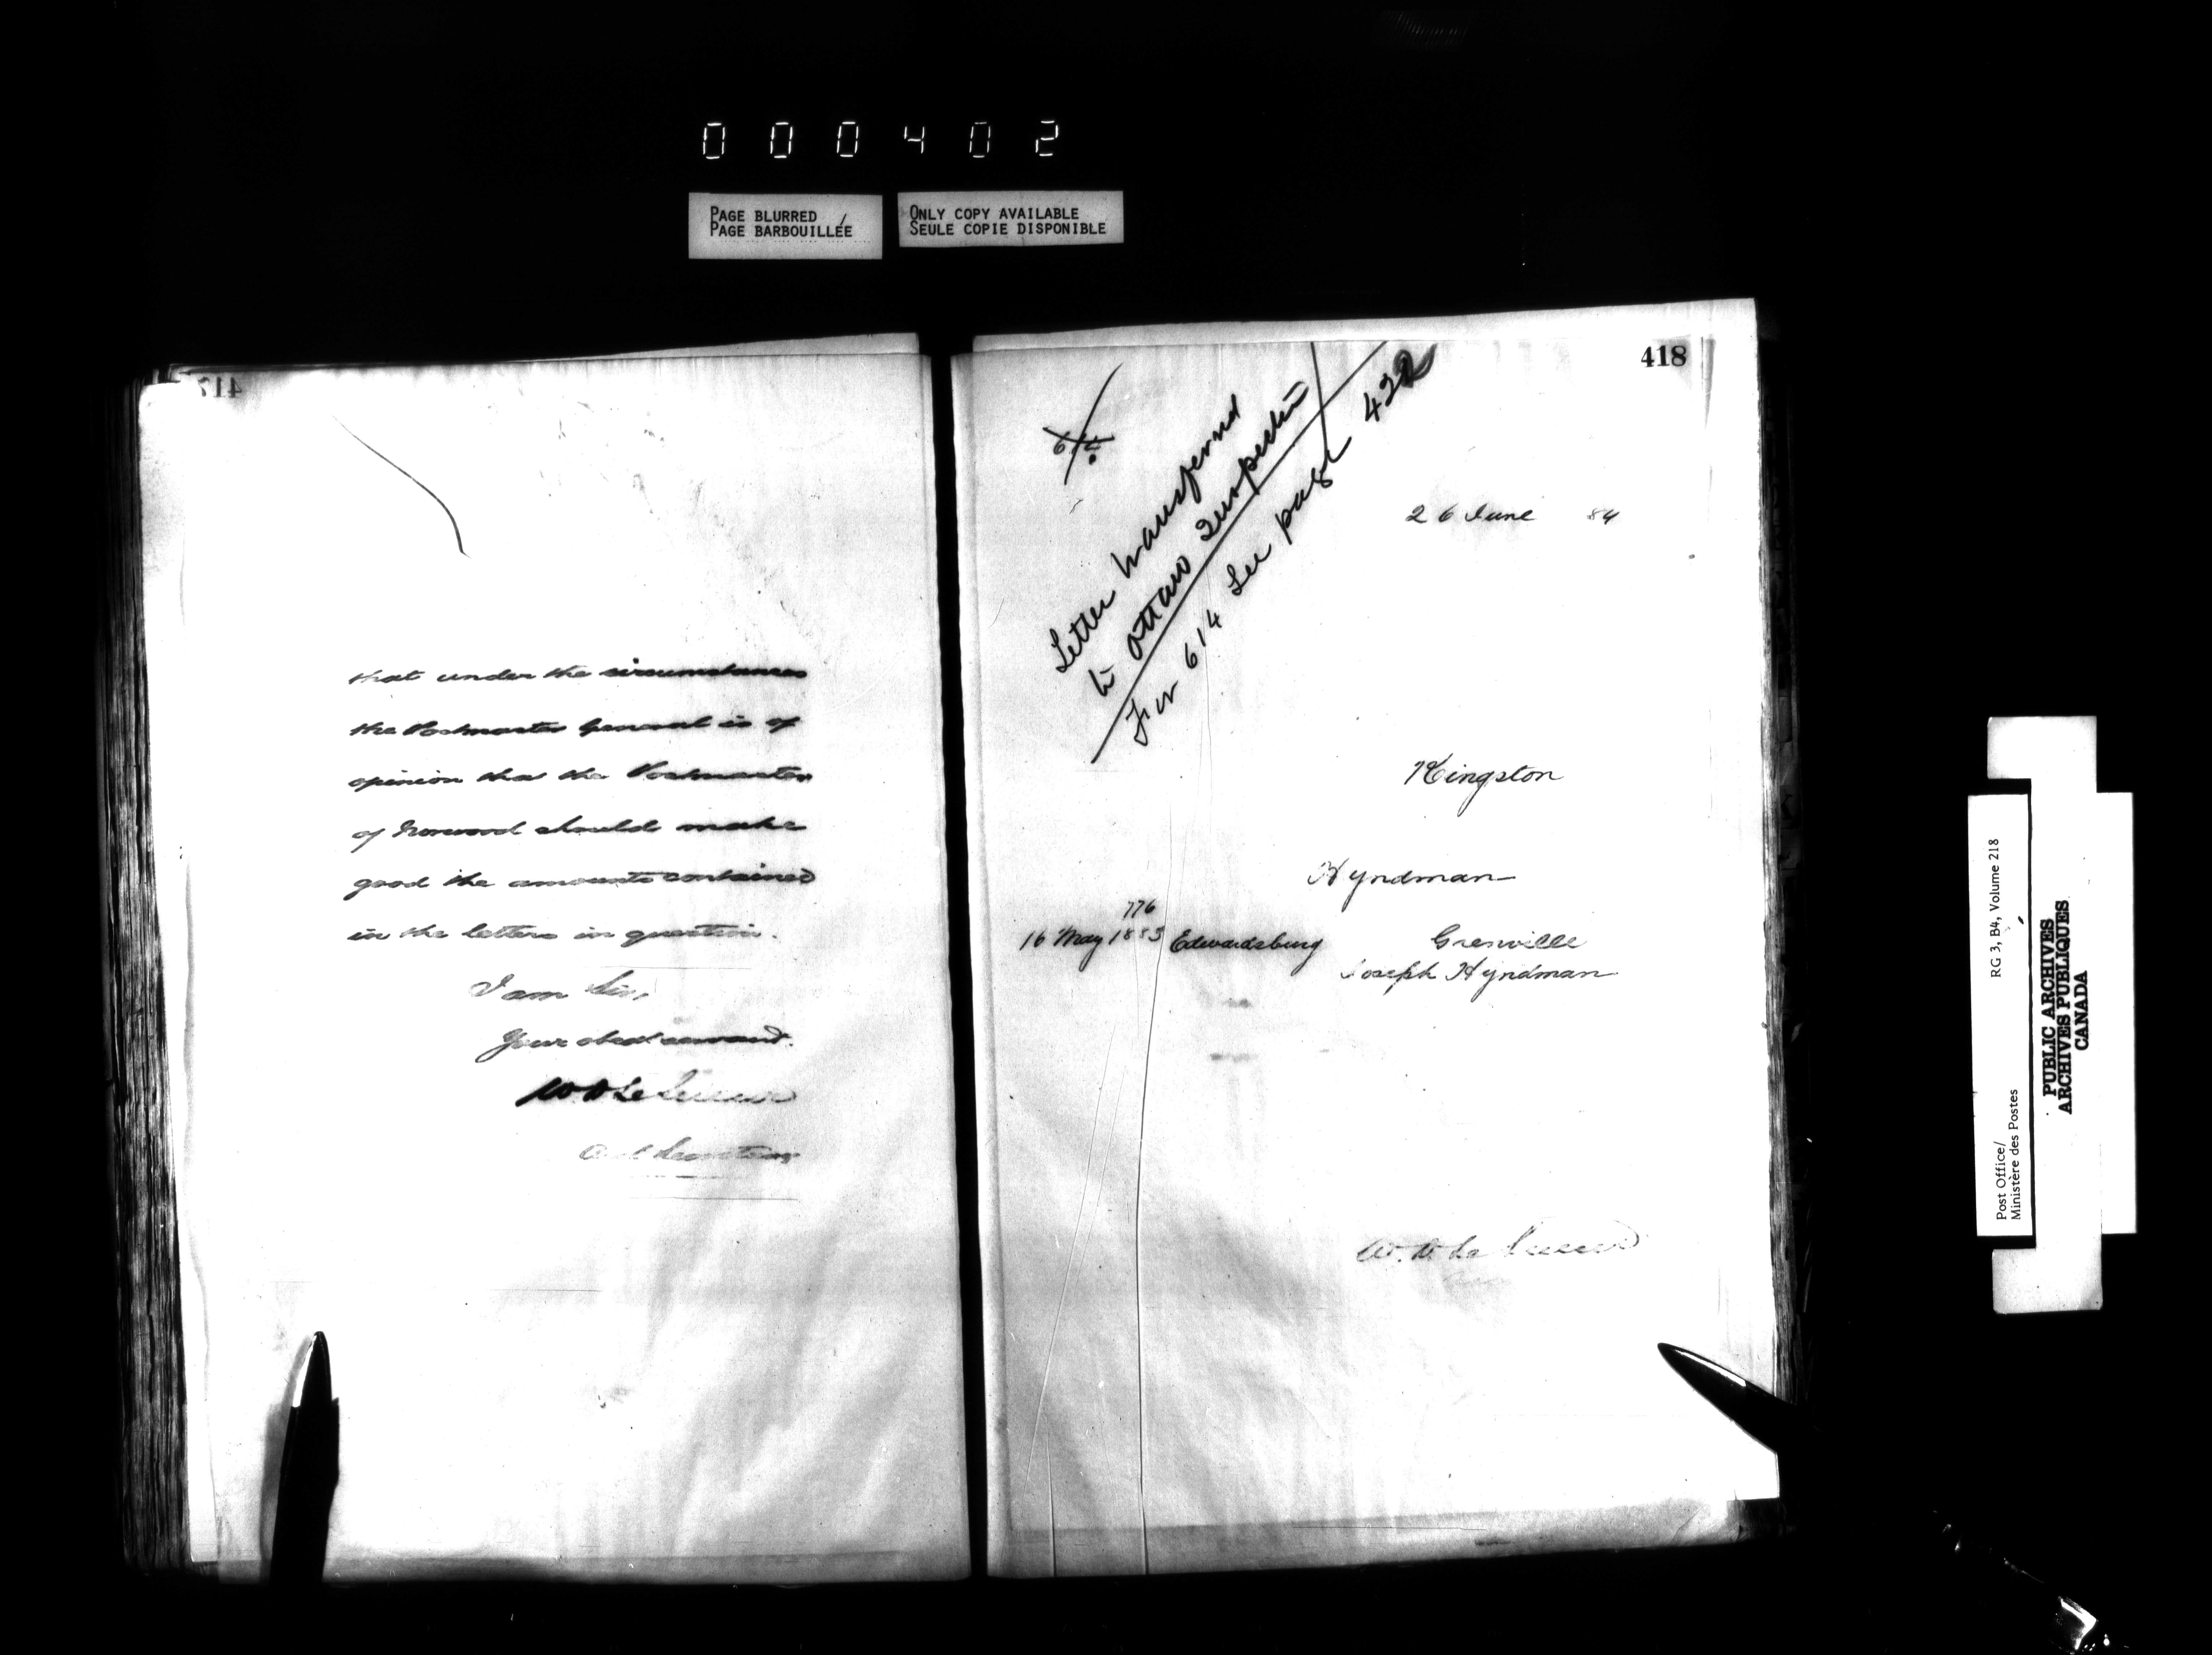 000402
PAGE BLURRED /
PAGE BARBOUILLÉE
ONLY COPY AVAILABLE
SEULE COPIE DISPONIBLE
417
that under the circumstances
the Postmaster General is of
opinion that the Postmaster
of Norwood should make
good the amounts contained
in the letters in question.
I am Sir,
Your obed servant.
W D LeSueur
418
614
Letter transferred
to Ottawa Inspection
For 614 See page 422
26 June 84
Kingston
Hyndman
776
16 May 1883 Edwardsburg Grenville
Joseph Hyndman
W. D. Le Sueur
Post Office/
Ministère des Postes
RG 3, B4, Volume 218
PUBLIC ARCHIVES
ARCHIVES PUBLIQUES
CANADA